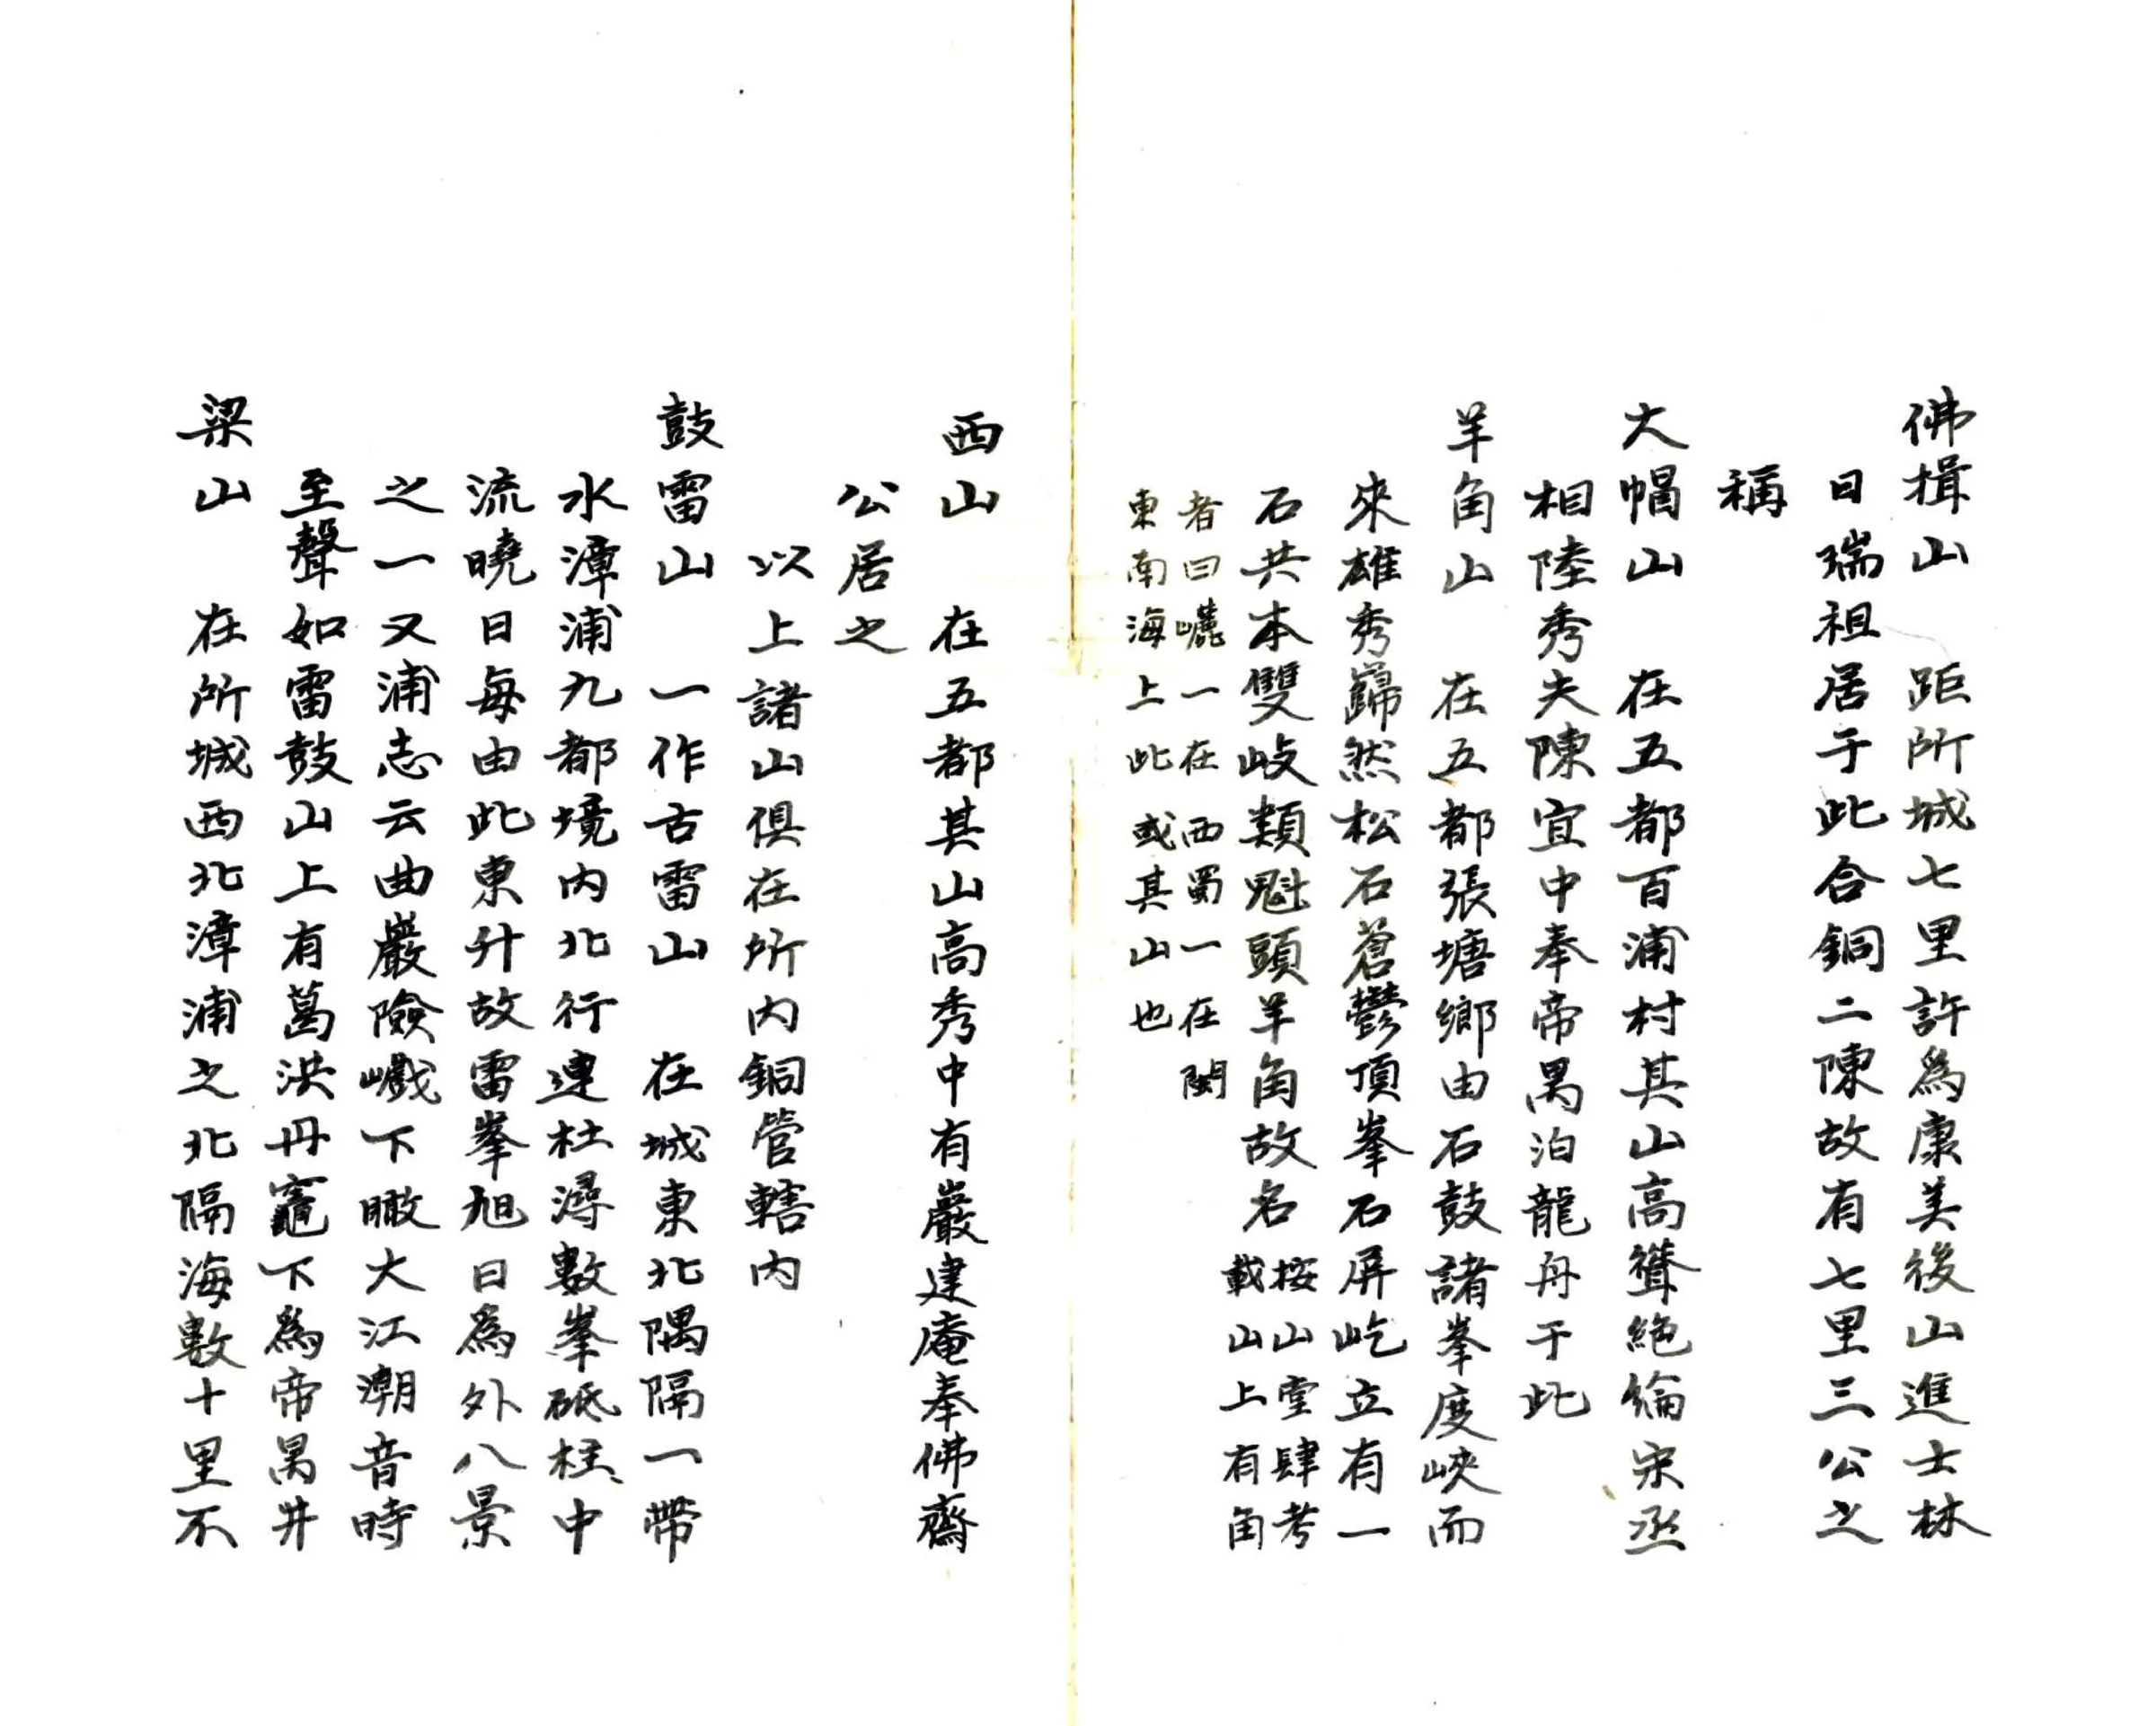 佛揖山　距所城七里許為康美後山進士林
日瑞祖居于此合銅二陳故有七里三公之
稱
大帽山　在五都百浦村其山高聳絕倫宋丞
相陸秀夫陳宜中奉帝昺泊龍舟于此
羊角山　在五都張塘鄉由石鼓諸峯度峽而
來雄秀巋然松石蒼鬱頂峯石屏屹立有一
石共本雙歧類魁頭羊角故名
按山堂肆考
載山上有角
者曰㠣一在西蜀一在閩
東南海上此或其山也
西山　在五都其山高秀中有巖建庵奉佛齋
公居之
以上諸山俱在所內銅管轄內
鼓雷山　一作古雷山　在城東北隅隔一帶
水漳浦九都境內北行連杜潯數峯砥柱中
流曉日每由此東升故雷峯旭日為外八景
之一又浦志云曲巖險巇下瞰大江潮音時
至聲如雷鼓山上有葛洪丹竈下為帝昺井
梁山　在所城西北漳浦之北隔海數十里不